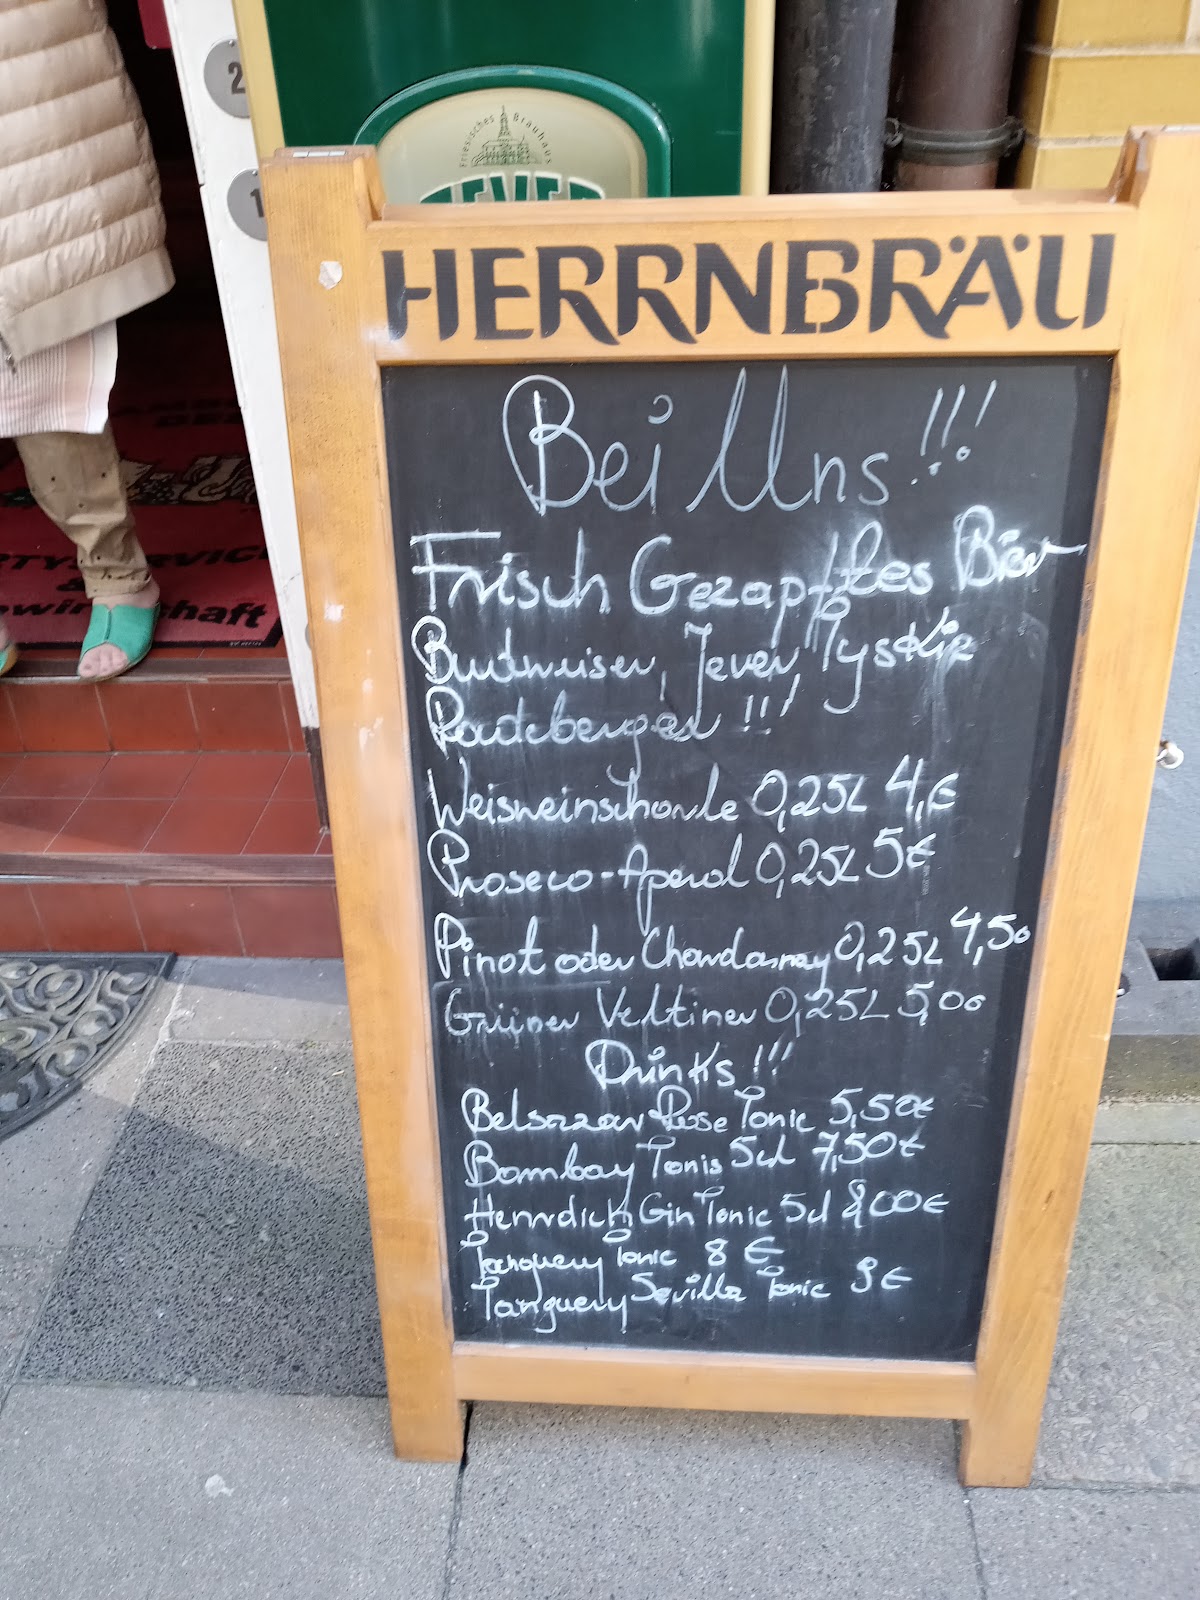 2
1
Friesisches Brauhaus
JEVER
HERRNBRÄU
Bei Uns!!!
Frisch Gezapftes Bier
Budweiser, Jever, Tyskie
Radeberger !!!
Weisweinschorle 0,25L 4,€
Proseco-Aperol 0,25L 5€
Pinot oder Chardasnay 0,25L 4,50
Grüner Veltiner 0,25L 5,00
Drinks !!!
Belsazar Rose Tonic 5,50€
Bombay Tonis 5cl 7,50€
Henrdich Gin Tonic 5cl 8,00€
Tanquery Tonic 8 €
Tanquery Sevilla Tonic 9€
RTYSERVICE
&
ewirtschaft